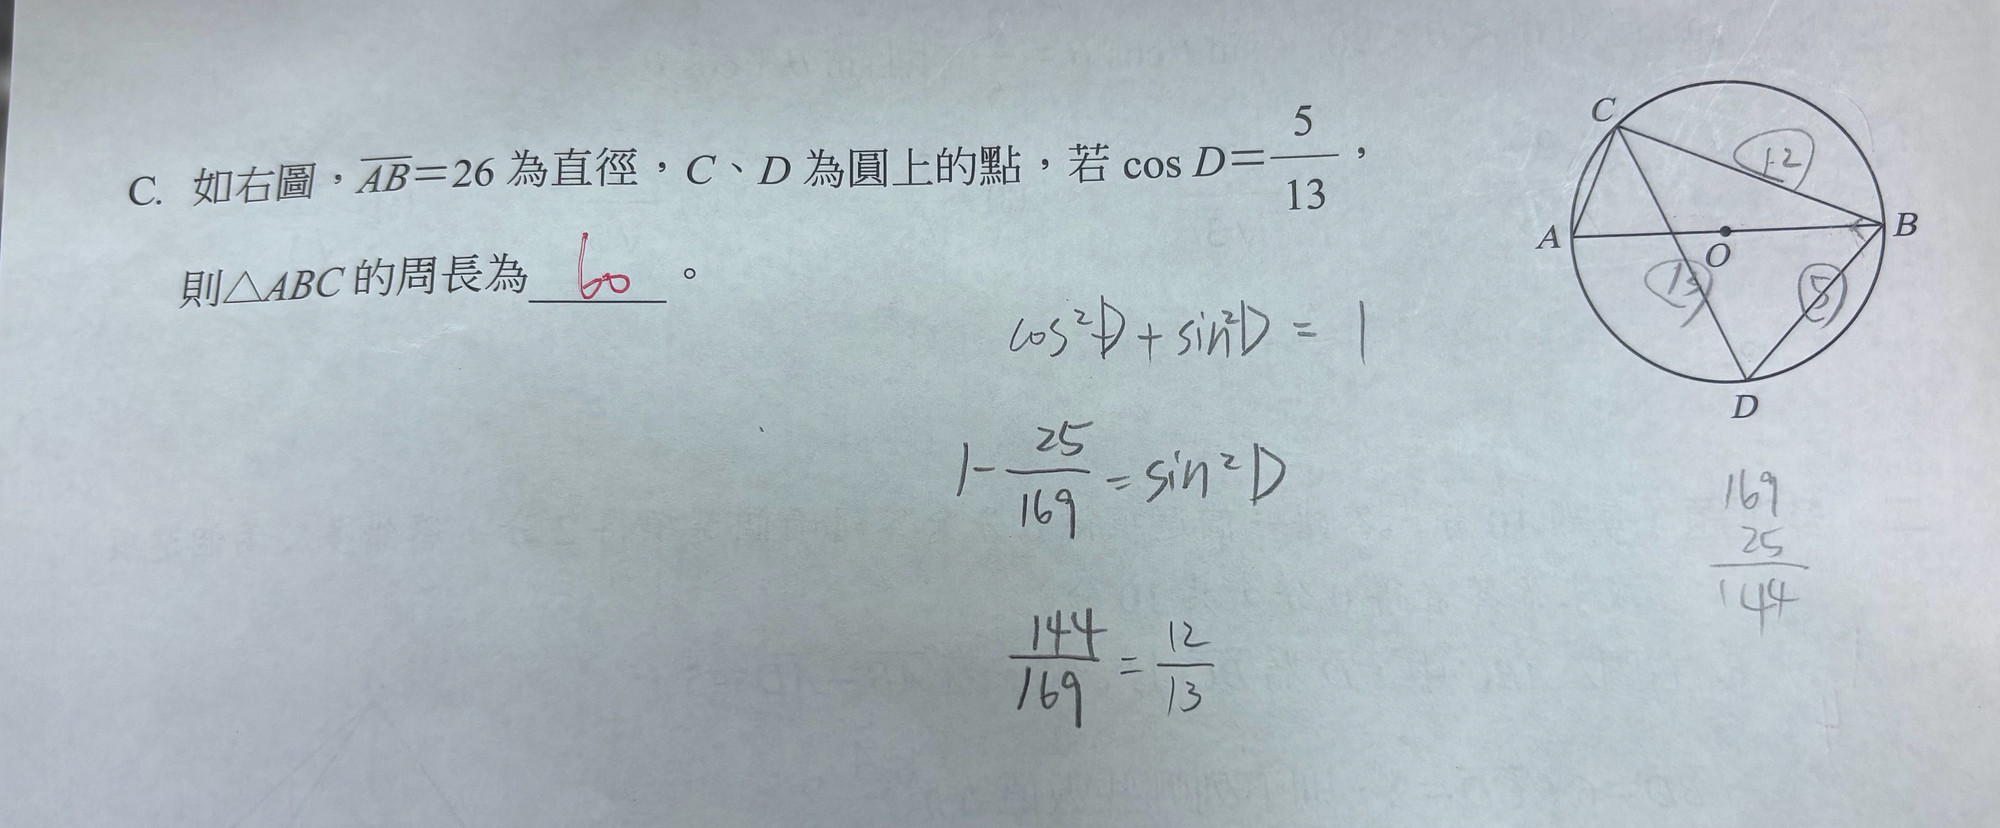 C. 如右圖，AB=26 為直徑，C、D 為圓上的點，若 cos D=5/13，
則△ABC 的周長為 60 。
cos²D + sin²D = 1
1 - 25/169 = sin²D
144/169 = 12/13
C
12
A
B
O
13
5
D
169
25
144